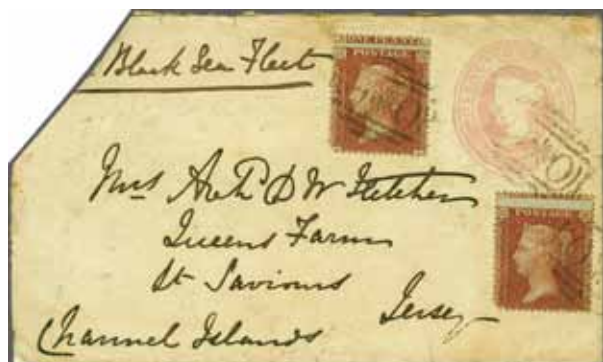 Black Sea Fleet
ONE PENNY
POSTAGE
Mrs Arth D W Fletcher
Queens Farm
St Saviours
Jersey
Channel Islands
POSTAGE